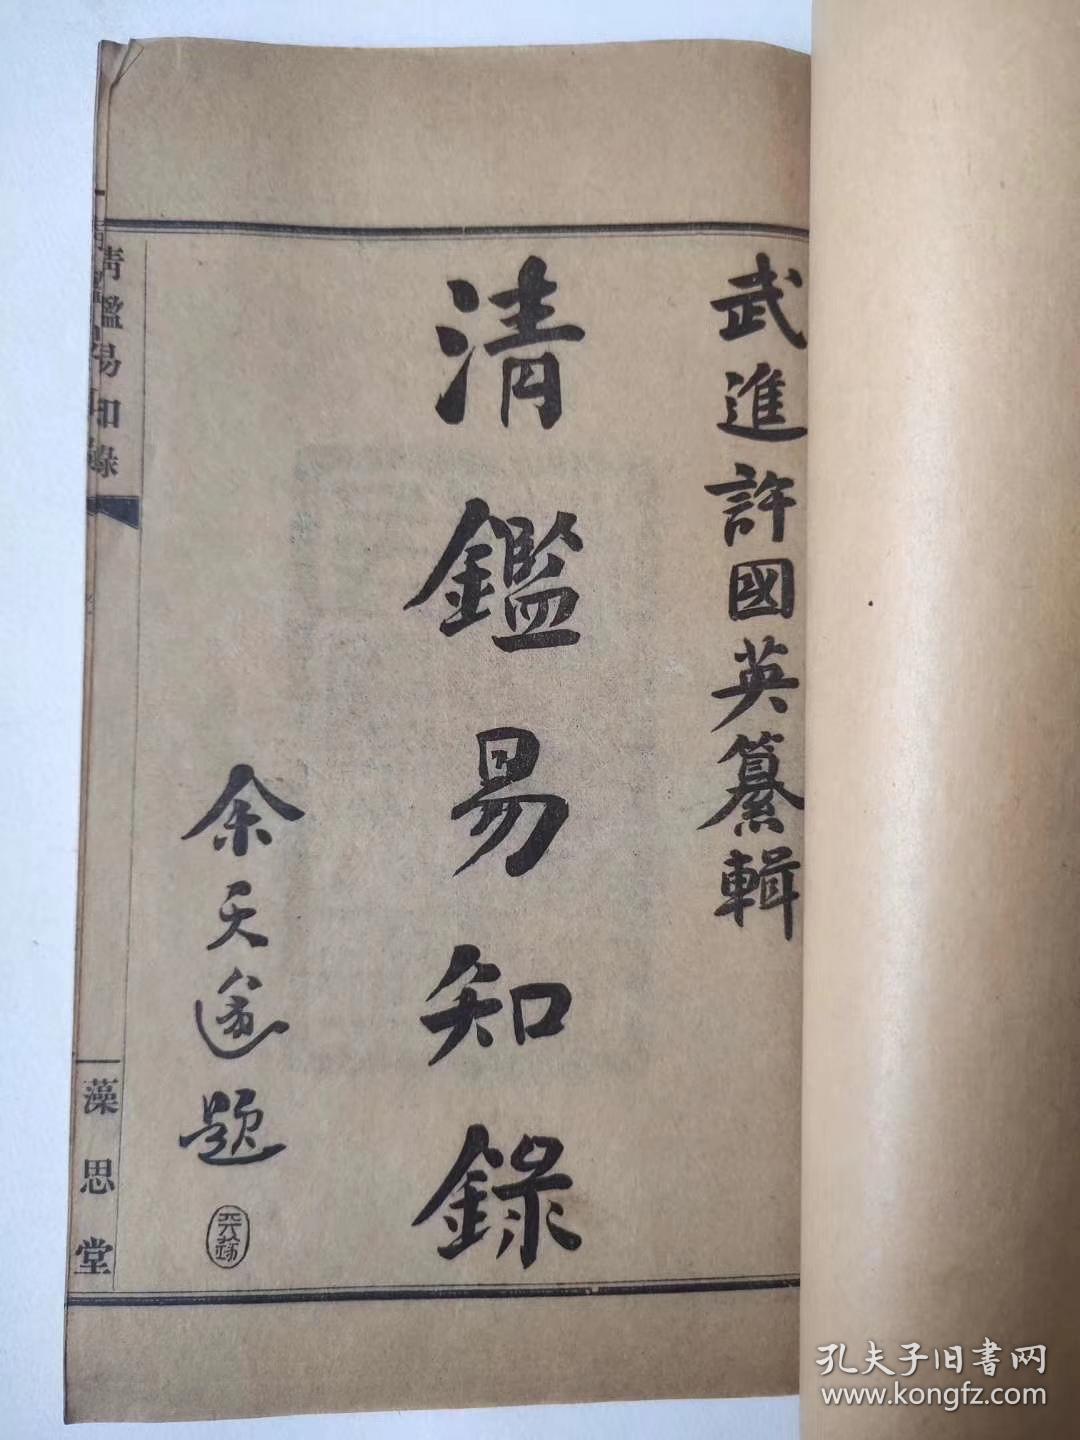 武進許國英纂輯
清鑑易知錄
余天遂題
天遂
清鑑易知錄
藻思堂
孔夫子旧書网
www.kongfz.com